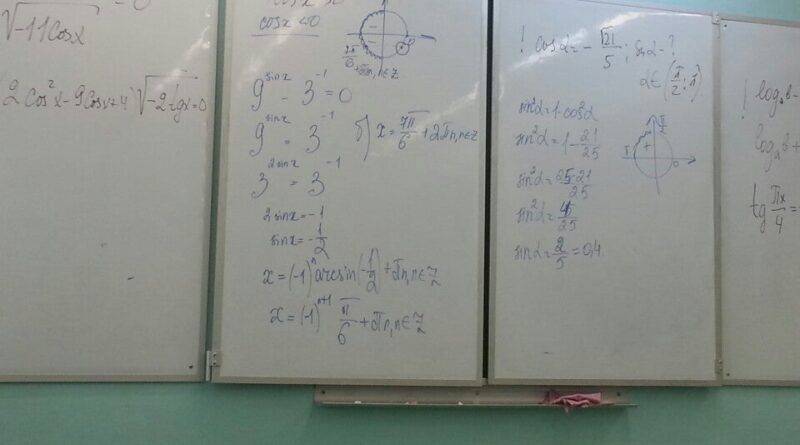 √-11cosx
2cos²x-9cosx+4)√-2tgx=0
cosx≤0
+2πn,n∈Z
9^sinx - 3^-1 = 0
9^sinx = 3^-1
б) x=7π/6+2πn,n∈Z
3^2sinx = 3^-1
2sinx=-1
sinx=-1/2
x=(-1)^n arcsin(-1/2)+πn,n∈Z
x=(-1)^n+1 π/6+πn,n∈Z
! cosα=-√21/5; sinα-?
α∈(π/2;π)
sin²α=1-cos²α
sin²α=1-21/25
sin²α=25-21/25
sin²α=4/25
sinα=2/5=0,4
π/2
π
+
0
! log
log
tg πx/4=